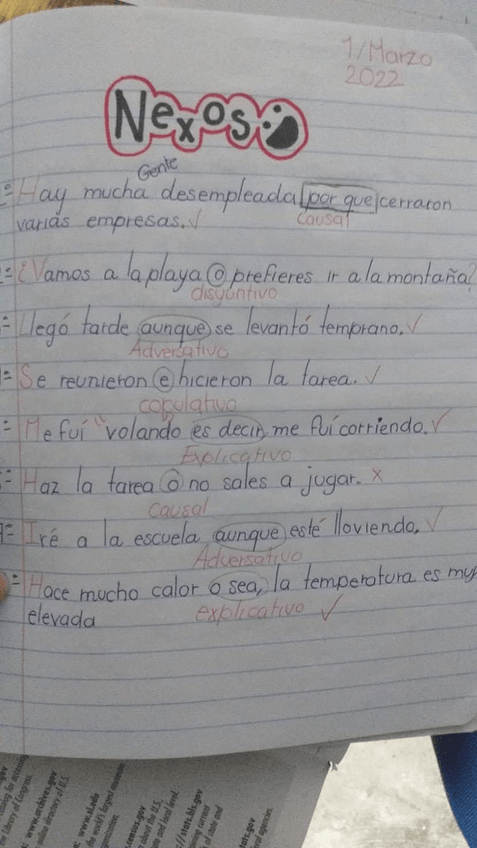 1/Marzo
2022
Nexos
Gente
Hay mucha desempleada por que cerraron
varias empresas. ✓
Causal
¿Vamos a la playa o prefieres ir a la montaña?
disyuntivo
Llegó tarde aunque se levantó temprano. ✓
Adversativo
Se reunieron e hicieron la tarea. ✓
copulativo
Me fuí "volando es decir, me fuí corriendo. ✓
Explicativo
Haz la tarea o no sales a jugar. x
Causal
Iré a la escuela aunque esté lloviendo. ✓
Adversativo
Hace mucho calor o sea, la temperatura es muy
elevada
explicativo ✓